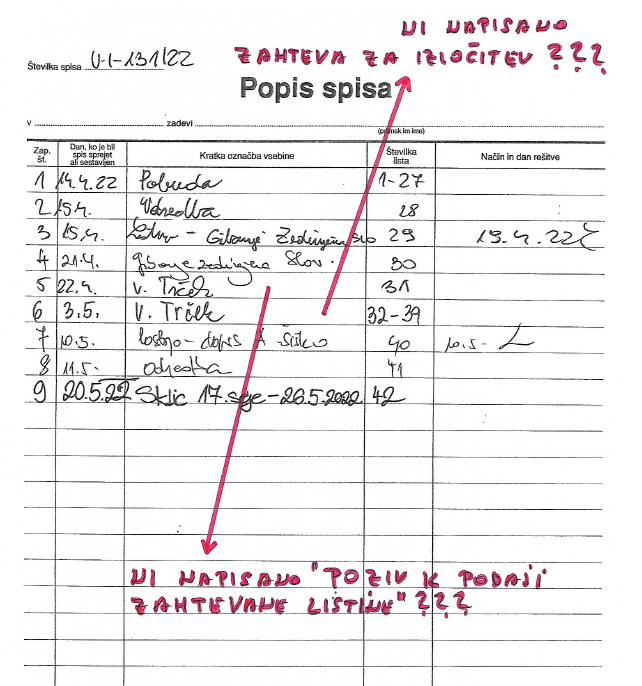 NI NAPISANO
ZAHTEVA ZA IZLOČITEV ???
Številka spisa U-I-131/22
Popis spisa
v zadevi
(priimek im ime)
Zap. št. Dan, ko je bil spis sprejet ali sestavljen Kratka označba vsebine Številka lista Način in dan rešitve
1 14.4.22 Pobuda 1-27
2 15.4. Odredba 28
3 15.4. - Gibanje Zedinjena Slo 29 19.4.22
4 21.4. Gibanje zedinjena Slov. 30
5 22.4. V. Trček 31
6 3.5. V. Trček 32-39
7 10.5. - dopis A Šiško 40 10.5.
8 11.5. odredba 41
9 20.5.22 Sklic 17. seje - 26.5.2022 42
NI NAPISANO "POZIV K PODAJI
ZAHTEVANE LISTINE" ???